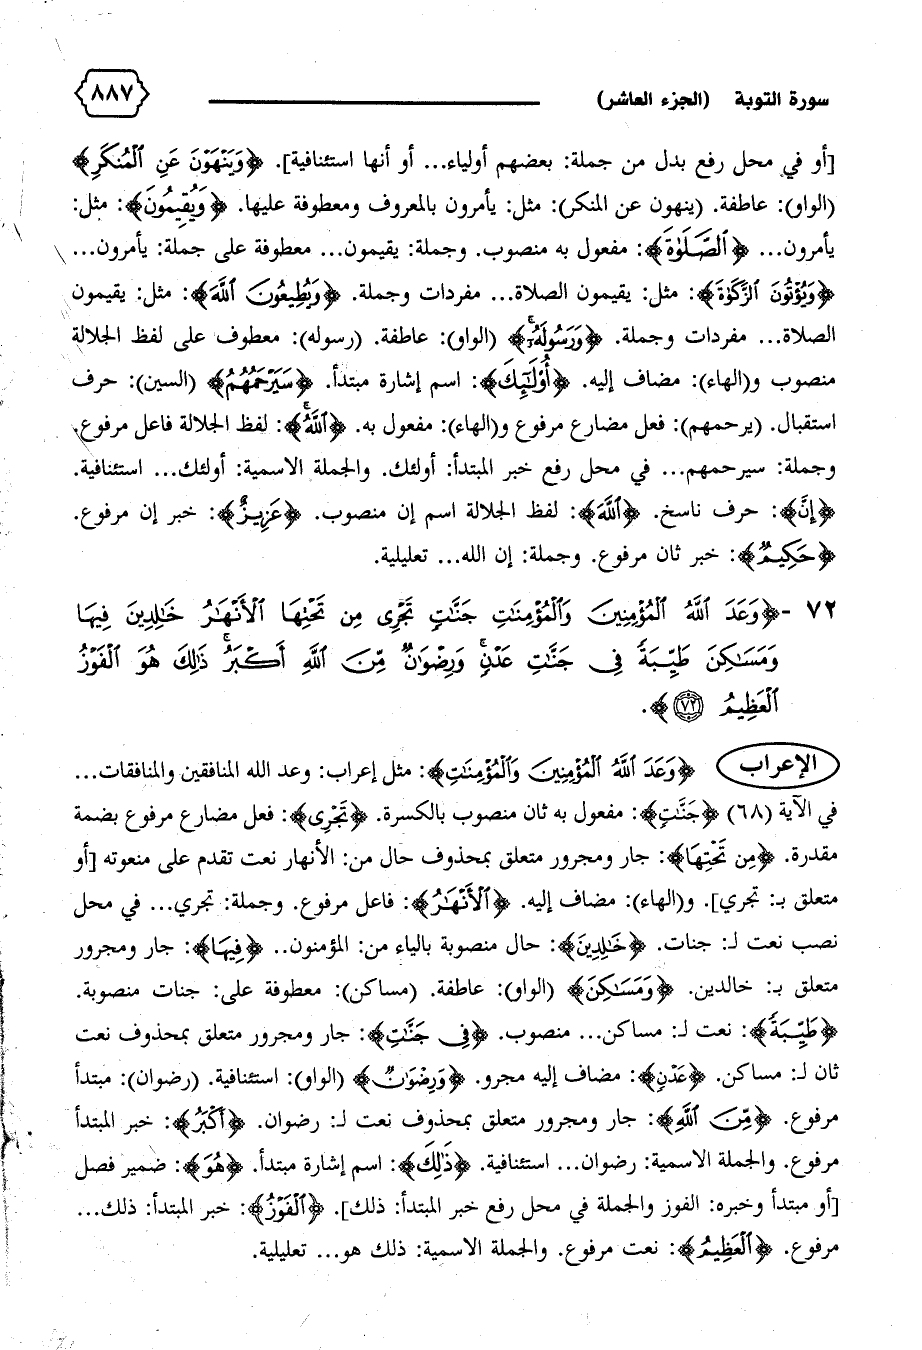 سورة التوبة (الجزء العاشر) ٨٨٧
[أو في محل رفع بدل من جملة: بعضهم أولياء... أو أنها استئنافية]. ﴿وَيَنْهَوْنَ عَنِ ٱلْمُنكَرِ﴾
(الواو): عاطفة. (ينهون عن المنكر): مثل: يأمرون بالمعروف ومعطوفة عليها. ﴿وَيُقِيمُونَ﴾: مثل:
يأمرون... ﴿ٱلصَّلَوٰةَ﴾: مفعول به منصوب. وجملة: يقيمون... معطوفة على جملة: يأمرون...
﴿وَيُؤْتُونَ ٱلزَّكَوٰةَ﴾: مثل: يقيمون الصلاة... مفردات وجملة. ﴿وَيُطِيعُونَ ٱللَّهَ﴾: مثل: يقيمون
الصلاة... مفردات وجملة. ﴿وَرَسُولَهُۥٓ﴾ (الواو): عاطفة. (رسوله): معطوف على لفظ الجلالة
منصوب و(الهاء): مضاف إليه. ﴿أُوْلَٰٓئِكَ﴾: اسم إشارة مبتدأ. ﴿سَيَرْحَمُهُمُ﴾ (السين): حرف
استقبال. (يرحمهم): فعل مضارع مرفوع و(الهاء): مفعول به. ﴿ٱللَّهُ﴾: لفظ الجلالة فاعل مرفوع.
وجملة: سيرحمهم... في محل رفع خبر المبتدأ: أولئك. والجملة الاسمية: أولئك... استئنافية.
﴿إِنَّ﴾: حرف ناسخ. ﴿ٱللَّهَ﴾: لفظ الجلالة اسم إن منصوب. ﴿عَزِيزٌ﴾: خبر إن مرفوع.
﴿حَكِيمٌ﴾: خبر ثان مرفوع. وجملة: إن الله... تعليلية.
٧٢ -﴿وَعَدَ ٱللَّهُ ٱلْمُؤْمِنِينَ وَٱلْمُؤْمِنَٰتِ جَنَّٰتٍ تَجْرِى مِن تَحْتِهَا ٱلْأَنْهَٰرُ خَٰلِدِينَ فِيهَا
وَمَسَٰكِنَ طَيِّبَةً فِى جَنَّٰتِ عَدْنٍ ۚ وَرِضْوَٰنٌ مِّنَ ٱللَّهِ أَكْبَرُ ۚ ذَٰلِكَ هُوَ ٱلْفَوْزُ
ٱلْعَظِيمُ ٧٢﴾.
الإعراب ﴿وَعَدَ ٱللَّهُ ٱلْمُؤْمِنِينَ وَٱلْمُؤْمِنَٰتِ﴾: مثل إعراب: وعد الله المنافقين والمنافقات...
في الآية (٦٨) ﴿جَنَّٰتٍ﴾: مفعول به ثان منصوب بالكسرة. ﴿تَجْرِى﴾: فعل مضارع مرفوع بضمة
مقدرة. ﴿مِن تَحْتِهَا﴾: جار ومجرور متعلق بمحذوف حال من: الأنهار نعت تقدم على منعوته [أو
متعلق بـ: تجري]. و(الهاء): مضاف إليه. ﴿ٱلْأَنْهَٰرُ﴾: فاعل مرفوع. وجملة: تجري... في محل
نصب نعت لـ: جنات. ﴿خَٰلِدِينَ﴾: حال منصوبة بالياء من: المؤمنون.. ﴿فِيهَا﴾: جار ومجرور
متعلق بـ: خالدين. ﴿وَمَسَٰكِنَ﴾ (الواو): عاطفة. (مساكن): معطوفة على: جنات منصوبة.
﴿طَيِّبَةً﴾: نعت لـ: مساكن... منصوب. ﴿فِى جَنَّٰتِ﴾: جار ومجرور متعلق بمحذوف نعت
ثان لـ: مساكن. ﴿عَدْنٍ﴾: مضاف إليه مجرو. ﴿وَرِضْوَٰنٌ﴾ (الواو): استئنافية. (رضوان): مبتدأ
مرفوع. ﴿مِّنَ ٱللَّهِ﴾: جار ومجرور متعلق بمحذوف نعت لـ: رضوان. ﴿أَكْبَرُ﴾: خبر المبتدأ
مرفوع. والجملة الاسمية: رضوان... استئنافية. ﴿ذَٰلِكَ﴾: اسم إشارة مبتدأ. ﴿هُوَ﴾: ضمير فصل
[أو مبتدأ وخبره: الفوز والجملة في محل رفع خبر المبتدأ: ذلك]. ﴿ٱلْفَوْزُ﴾: خبر المبتدأ: ذلك...
مرفوع. ﴿ٱلْعَظِيمُ﴾: نعت مرفوع. والجملة الاسمية: ذلك هو... تعليلية.